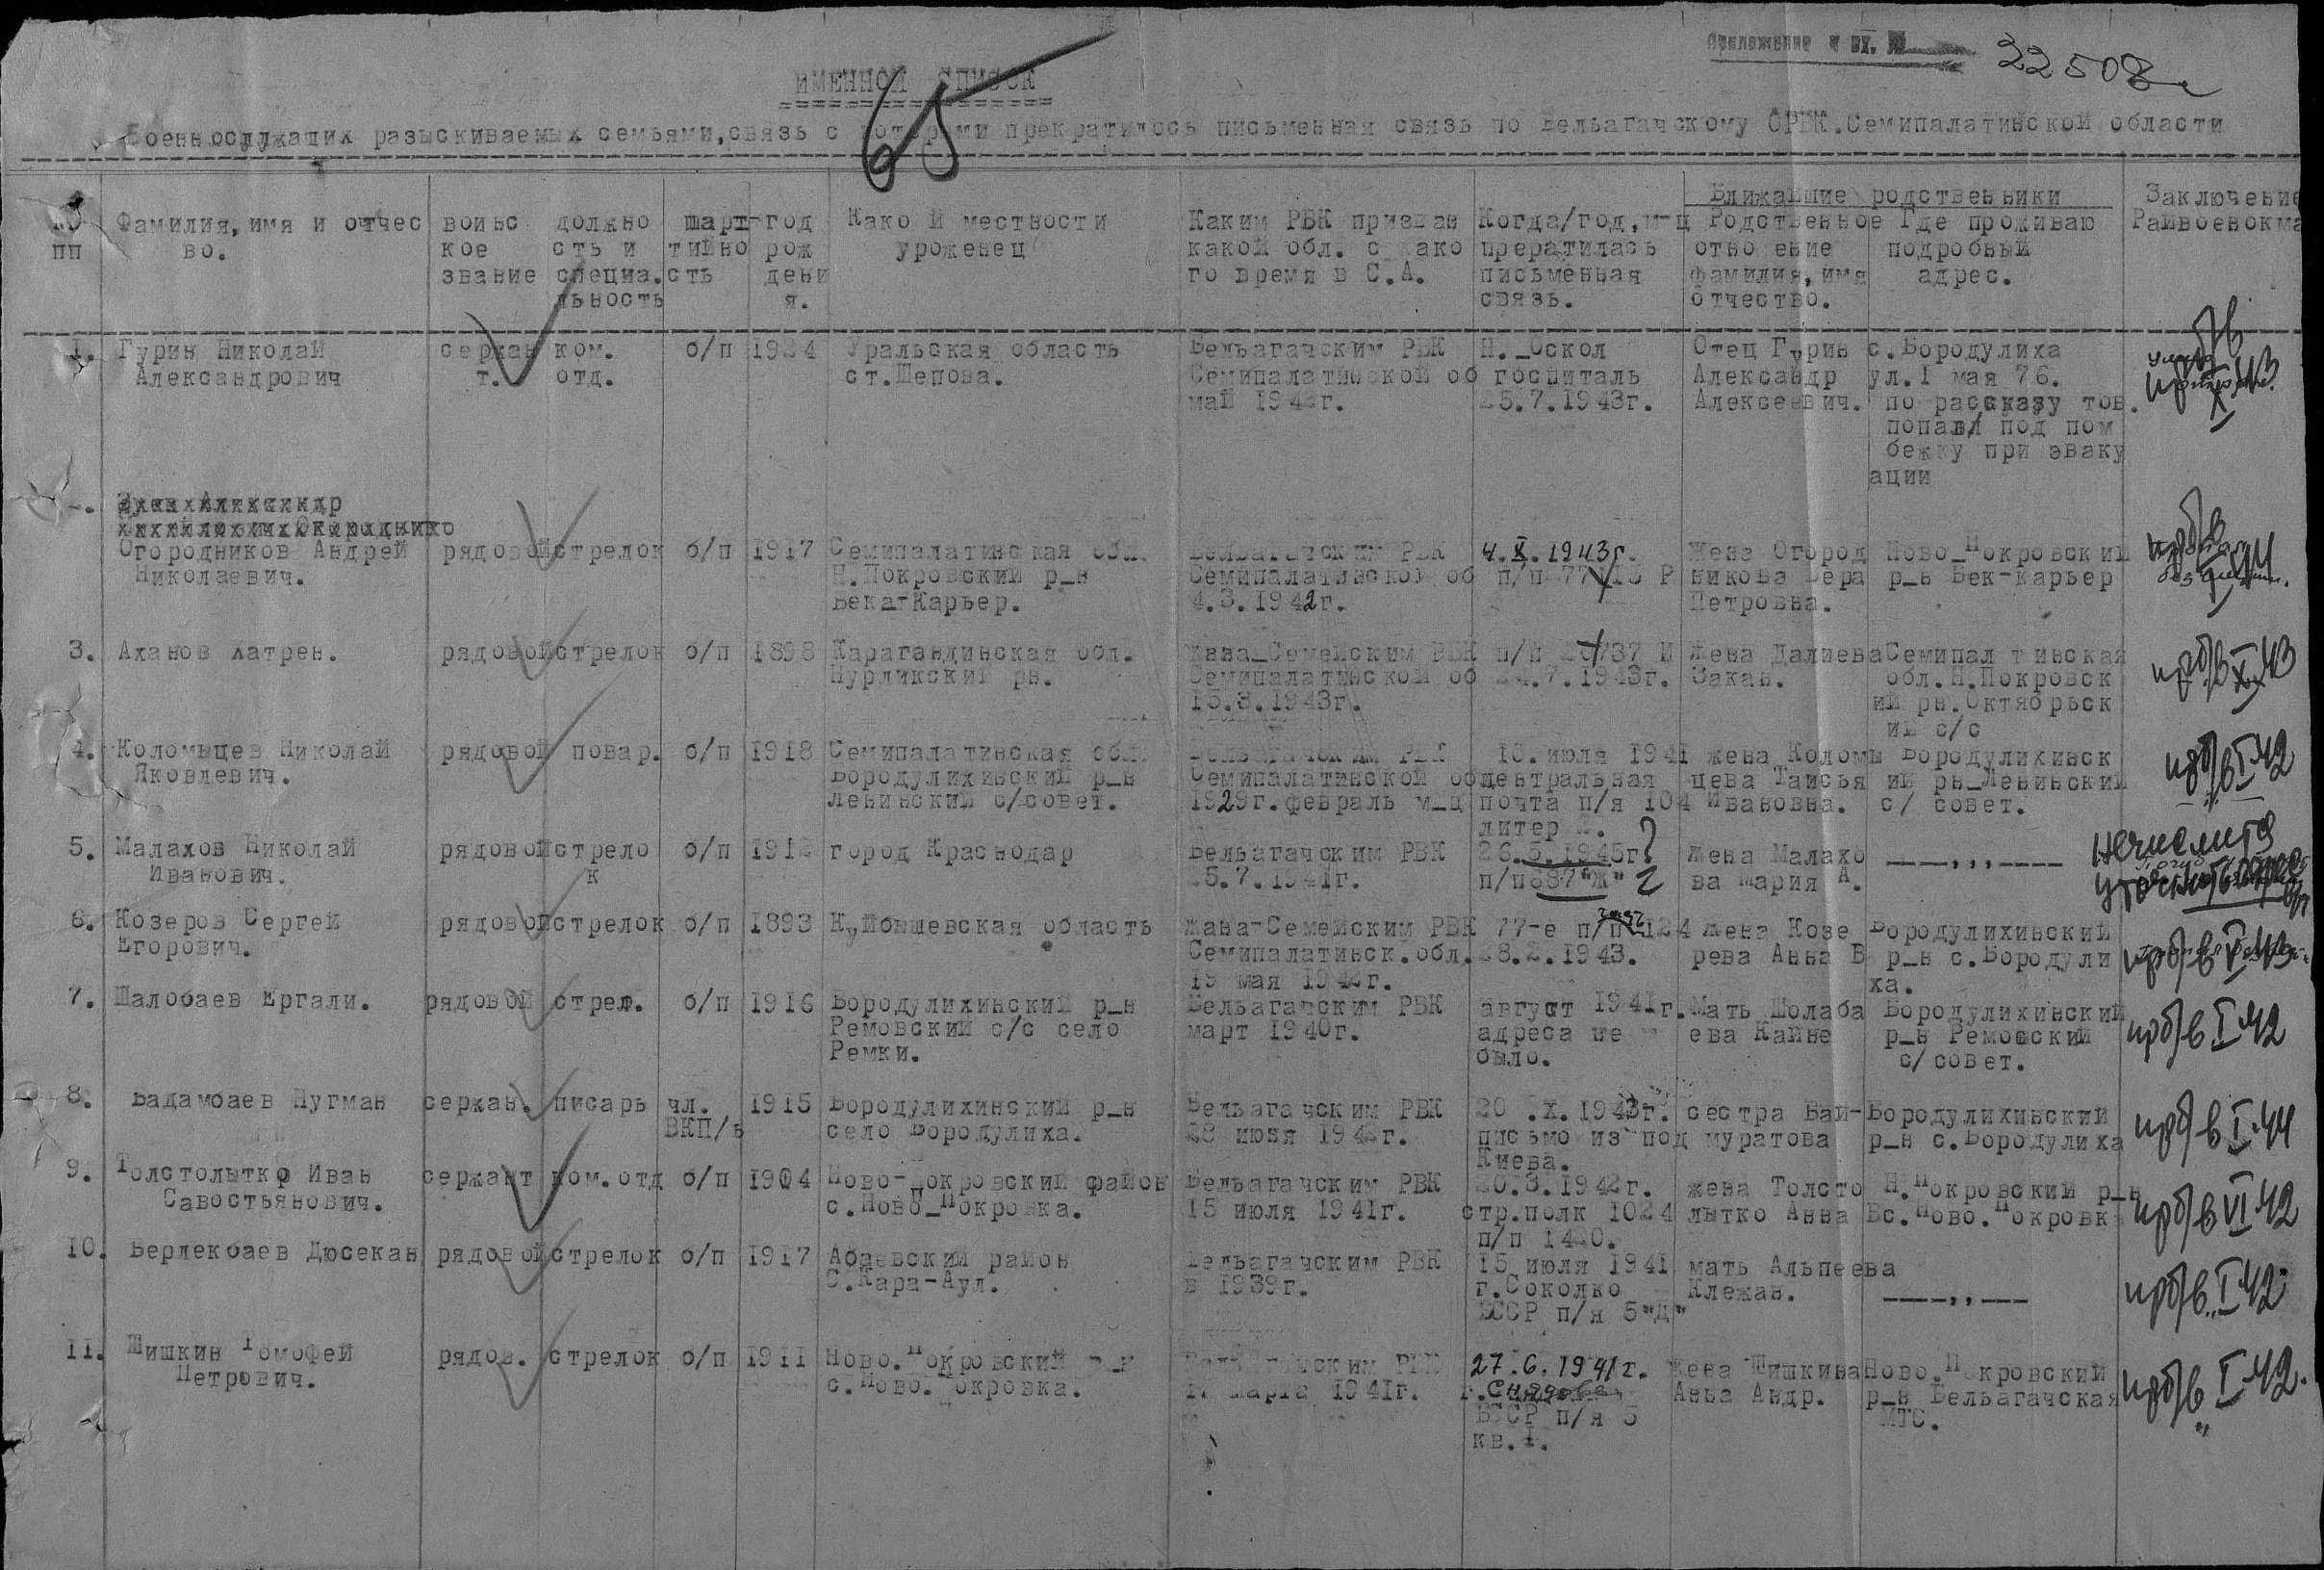 Приложение к вх. №
22508
ИМЕННОЙ СПИСОК
65
Военнослужащих разыскиваемых семьями,связь с которыми прекратилось письменная связь по Бельагачскому ОРВК.Семипалатинской области
№
пп
Фамилия,имя и отчес
во.
воинс
кое
звание
должно
сть и
специа.
льность
парт
тийно
сть
год
рож
дени
я.
Како й местности
уроженец
Каким РВК призван
какой обл. с како
го время в С.А.
Когда/год,м-ц
прератилась
письменная
связь.
Ближайшие родственники
Родственное
отно ение
фамилия,имя
отчество.
Где проживаю
подробный
адрес.
Заключение
Райвоенкома
1. Гурин Николай
Александрович
сержан
т.
ком.
отд.
б/п
1924
Уральская область
ст.Шепова.
Бельагачским РВК
Семипалатинской об
май 1942г.
Н._Оскол
госпиталь
25.7.1943г.
Отец Гурин
Александр
Алексеевич.
с.Бородулиха
ул.1 мая 76.
по рассказу тов.
попавл под пом
бежку при эваку
ации
Огородников Андрей
Николаевич.
рядовой
стрелок
б/п
1917
Семипалатинская обл.
Н.Покровский р_н
Бека-Карьер.
Бельагачским РВК
Семипалатинской об
4.3.1942г.
4.X.1943г.
п/п
Жена Огород
никова Вера
Петровна.
Ново_Покровский
р_н Бек-карьер
3. Аханов Катрен.
рядовой
стрелок
б/п
1898
Карагандинская обл.
Нурликский рн.
Жана_Семейским РВК
Семипалатинской об
15.3.1943г.
п/п
24.7.1943г.
Жена Далиева
Закан.
Семипал тинская
обл.Н.Покровск
ий рн.Октябрьск
ий с/с
прб/в X 43
4. Коломыцев Николай
Яковлевич.
рядовой
повар.
б/п
1918
Семипалатинская обл.
Бородулихинский р_н
Ленинский с/совет.
Бельагачским РВК
Семипалатинской об
1929г.февраль м_ц
10.июля 1941
центральная
почта п/я 104
литер
жена Коломы
цева Таисья
Ивановна.
Бородулихинск
ий рн_Ленинский
с/ совет.
прб/в I 42
5. Малахов Николай
Иванович.
рядовой
стрело
к
б/п
1912
город Краснодар
Бельагачским РВК
5.7.1941г.
26.5.1945г?
п/п887"Ж" ?
Жена Малахо
ва Мария А.
——,,,——
6. Козеров Сергей
Егорович.
рядовой
стрелок
б/п
1893
Куйбышевская область
Жана-Семейским РВК
Семипалатинск.обл.
15 мая 1942г.
77-е п/п 124
28.2.1943.
жена Козе
рева Анна В
Бородулихинский
р_н с.Бородули
ха.
прб/в V 43
7. Шалобаев Ергали.
рядовой
стрел.
б/п
1916
Бородулихинский р_н
Ремовский с/с село
Ремки.
Бельагачским РВК
март 1940г.
август 1941г.
адреса не
было.
Мать Шолаба
ева Кайне
Бородулихинский
р_н Ремовский
с/совет.
прб/в I 42
8. Бадамбаев Нугман
сержан.
писарь
чл.
ВКП/б
1915
Бородулихинский р_н
село Бородулиха.
Бельагачским РВК
28 июня 1942г.
20 .X.1943г.
письмо из под
Киева.
сестра Бай-
муратова
Бородулихинский
р_н с.Бородулиха
прб/в I 44
9. Толстолытко Иван
Савостьянович.
сержант
ком.отд
б/п
1904
Ново-Покровский район
с.Ново_Покровка.
Бельагачским РВК
15 июля 1941г.
20.3.1942г.
стр.полк 1024
п/п 1420.
жена Толсто
лытко Анна В
Н.Покровский р_н
с.Ново.Покровк
прб/в VI 42
10. Берлекбаев Дюсекан
рядовой
стрелок
б/п
1917
Абаевский район
С.Кара-Аул.
Бельагачским РВК
в 1939г.
15 июля 1941
г.Соколко
БССР п/я 5"Д"
мать Альпеева
Клежан.
——,,——
прб/в I 42
11. Шишкин Томофей
Петрович.
рядов.
стрелок
б/п
1911
Ново.Покровский р_н
с.Ново.Покровка.
Бельагачским РВК
17 марта 1941г.
27.6.1941г.
г.
БССР п/я 5
кв.1.
Жена Шишкина
Анна Андр.
Ново.Покровский
р_н Бельагачская
МТС.
прб/в I 42.